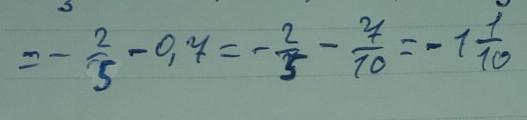 = - 2/5 - 0,7 = - 2/5 - 7/10 = - 1 1/10